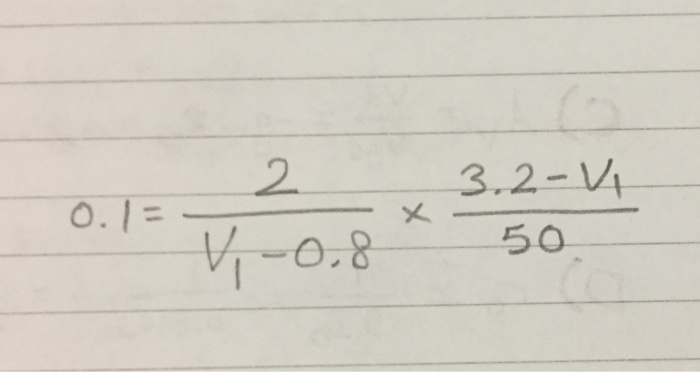 0.1 = 2 / (V₁ - 0.8) × (3.2 - V₁) / 50